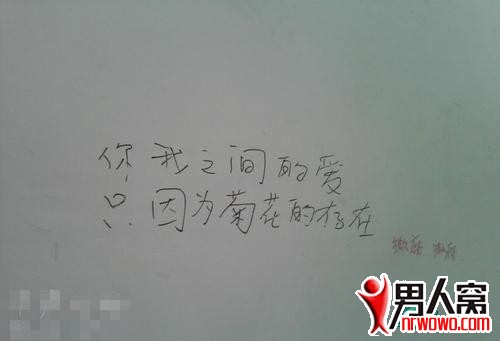 你我之间的爱
只因为菊花的存在
男人窝
nrwowo.com